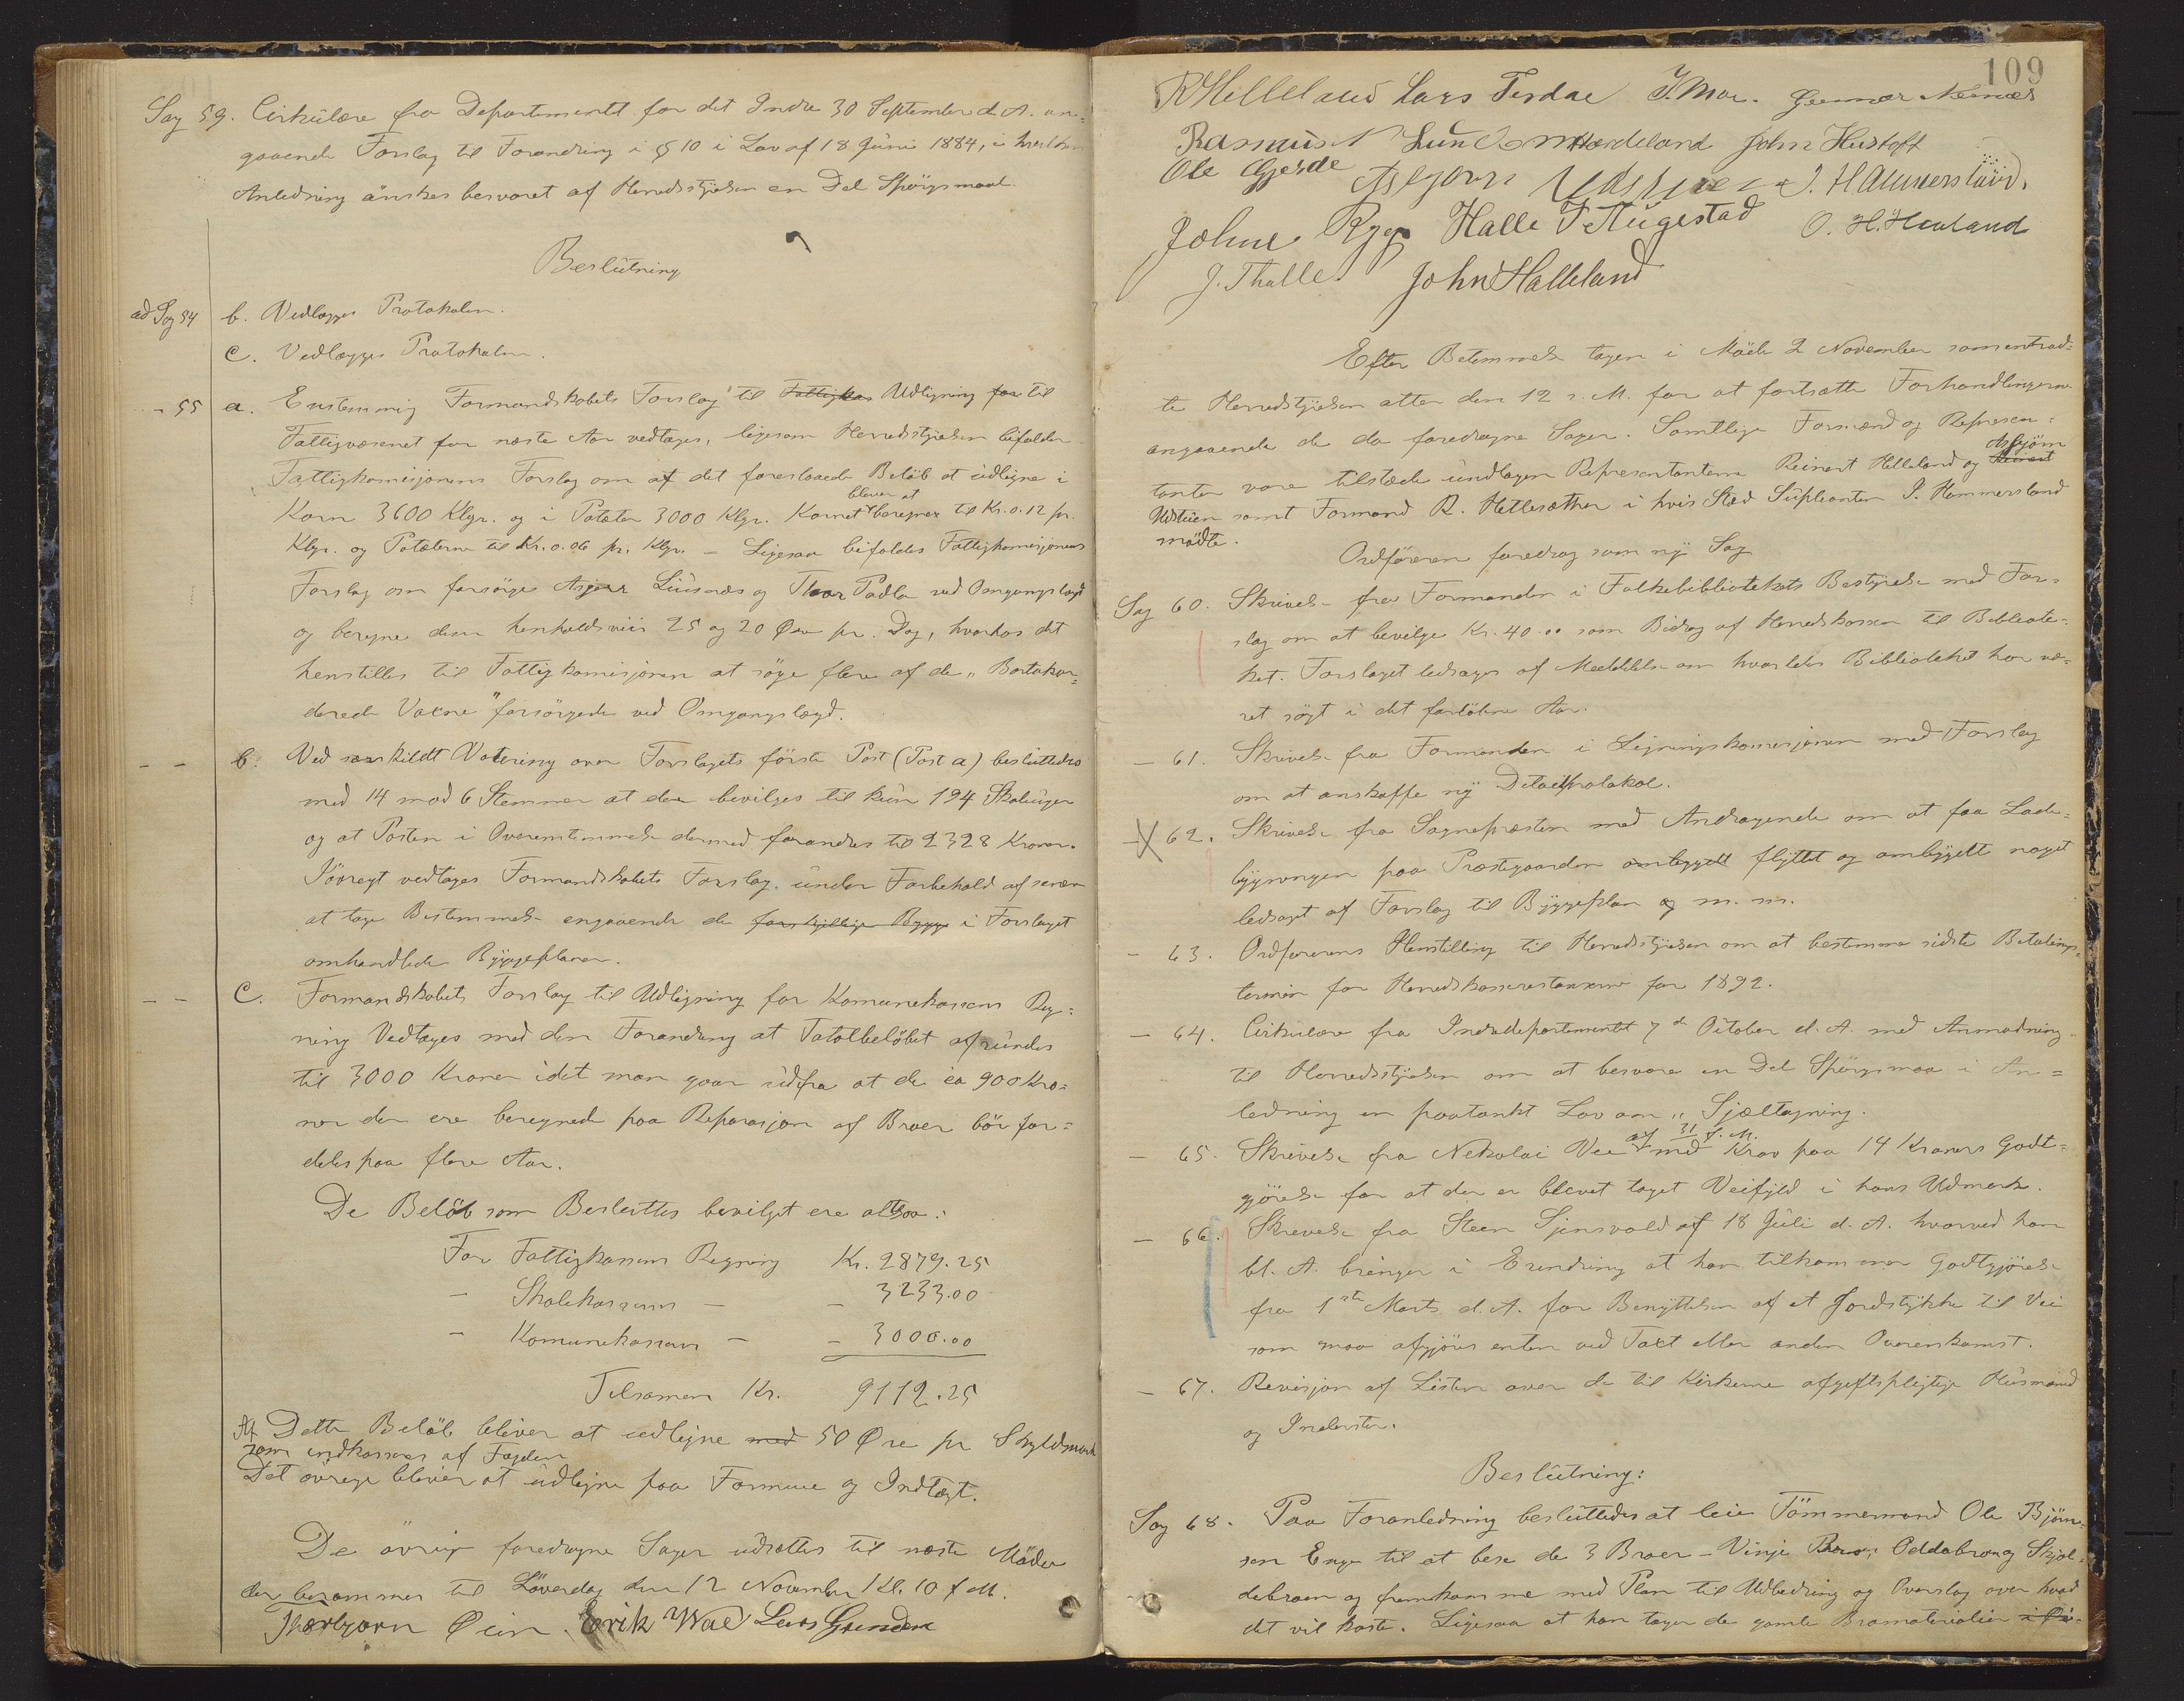 Sag 59. Cirkülære fra Departementet for det Indre 30 September d. A. an=
gaaende Forslag til Forandring i § 10 i Lov af 18 Jüni 1884, i hvilken
Anledning ønskes besvaret af Herredsstyrelsen en Del Spörgsmaal.
Beslütning
ad Sag 54 b. Vedlægges Protokolen.
c. Vedlægges Protokolen.
- 55 a. Enstemmig Formandskabets Forslag til Fattigkas Udligning for til
Fattigvæsenet for næste Aar vedtages, ligesom Herredsstyrelsen bifalder
Fattigkomisjonens Forslag om af det foreslaaede Beløb at üdligne i
Korn 3600 Klgr. og i Poteter 3000 Klgr. Kornet bliver at beregnes til Kr. 0.12 pr.
Klgr. og Poteterne til Kr. 0.06 pr. Klgr. - Ligesaa bifaldes Fattigkomisjonens
Forslag om forsørge Asgjerd Liüsnæs og Thor Padlæ ved Omgangslægd
og beregne dem henholdsviis 25 og 20 Øre pr. Dag, hvorhos det
henstilles til Fattigkomisjonen at søge flere af de „Bortakor=
derede Voxne" forsörgede ved Omgangslægd.
- - b. Ved særskildt Votering over Forslagets förste Post (Post a) beslüttedes
med 14 mod 6 Stemmer at der bevilges til kün 194 Skoleüger
og at Posten i Overenstemmelse dermed forandres til 2328 Kroner.
Iövrigt vedtages Formandskabets Forslag ünder Forbehold af senere
at tage Bestemmelse angaaende de forskjellige Bygge i Forslaget
omhandlede Byggeplaner.
- - C. Formandskabets Forslag til Udligning for Komunekassens Reg=
ning Vedtages med den Forandring at Totalbelöbet afründes
til 3000 Kroner idet man gaar üdfra at de ca 900 Kro=
ner der ere beregnede paa Reparasjon af Broer bör for=
deles paa flere Aar.
De Belöb som Besluttes bevilget ere altsaa:
For Fattigkassens Regning Kr. 2879.25
- Skolekassens - - 3233.00
- Komunekassens - - 3000.00
Tilsamen Kr. 9112.25
Af Dette Belöb bliver at üdligne med 50 Øre pr Skyldmark
som indkasseres af Fogden
Det övrige bliver at üdligne paa Formue og Indtægt.
De övrige foredragne Sager üdsættes til næste Møde
der berammes til Löverdag den 12 November Kl. 10 f. M.
Thorbjørn Øien. Erik Wæ Lars Grinden
109
R Helleland Lars Tesdal J. Moe. Gunnar Næsnæs
Rasmus Lund Mæordeland John Hustoft
Ole Gjerde Asgjøun Udstuen J. Hammersland.
Johne Ryg Halle T Haugestad O. H. Huuland
J. Thalle John Halleland
Efter Bestemmelse tagen i Møde 2 November samentraad=
te Herredsstyrelsen atter den 12 s. M. for at fortsætte Forhandlingerne
angaaende de da foredragne Sager. Samtlige Formænd og Represen=
tanter vare tilstæde ündtagen Representanterne Reinert Helleland og Reinert Asbjörn
Udstüen samt Formand R. Hetlesæther i hvis Sted Süpleanten J. Hammersland
mödte.
Ordföreren foredrog som ny Sag
Sag 60. Skrivelse fra Formanden i Folkebibliotekets Bestyrelse med For=
slag om at bevilge Kr. 40.00 som Bidrag af Herredskassen til Bibliote=
ket. Forslaget ledsages af Meddelelse om hvorledes Biblioteket har væ=
ret søgt i det forløbne Aar.
- 61. Skrivelse fra Formanden i Ligningskomisjonen med Forslag
om at anskaffe ny Detailprotokol.
- X 62. Skrivelse fra Sognepræsten med Andragende om at faa Lade=
bygningen paa Præstegaarden ombygget flyttet og ombygget noget
ledsaget af Forslag til Byggeplan og m. m.
- 63. Ordførerens Henstilling til Herredsstyrelsen om at bestemme sidste Betalings=
termin for Herredskasserestanserne for 1892.
- 64. Cirkulære fra Indredepartementet 7de October d. A. med Anmodning
til Herredsstyrelsen om at besvare en Del Spörgsmaa i An=
ledning en paatænkt Lov om „Sjæltagning.
- 65. Skrivelse fra Nikolai Vee af 31 f. M. med Krav paa 14 Kroners Godt=
gjörelse for at der er blevet taget Veifyld i hans Udmark.
- 66. Skrivelse fra Steen Sjensvold af 18 Jüli d. A. hvorved han
bl. A. bringer i Erindring at han tilkommer Godtgjörelse
fra 1ste Marts d. A. for Benyttelsen af et Jordstykke til Vei
som maa afgjöres enten ved Taxt eller anden Overenskomst.
- 67. Revisjon af Listen over de til Kirkerne afgiftspligtige Hüsmænd
og Inderster.
Beslütning:
Sag 68. Paa Foranledning beslüttedes at leie Tömmermand Ole Bjørn=
sen Enge til at bese de 3 Broer - Vinje Broer, Oddabro og Skjol=
debroen og fremkomme med Plan til Udbedring og Overslag over hvad
det vil koste. Ligesaa at han tager de gamle Bromaterialier i Øi=